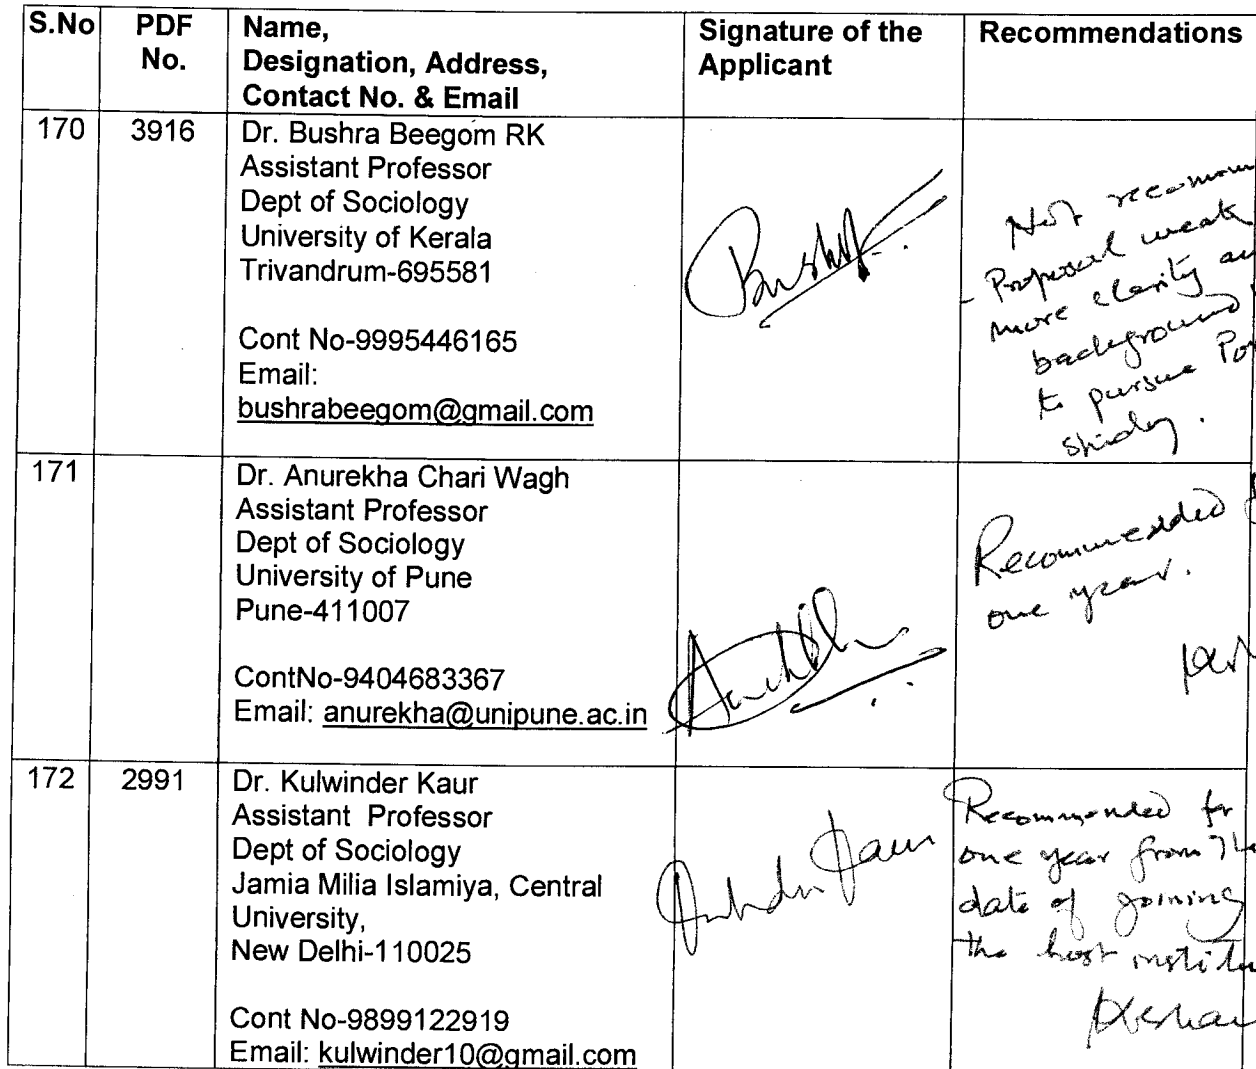 S.No PDF No. Name, Designation, Address, Contact No. & Email Signature of the Applicant Recommendations
170 3916 Dr. Bushra Beegom RK
Assistant Professor
Dept of Sociology
University of Kerala
Trivandrum-695581
Cont No-9995446165
Email:
bushrabeegom@gmail.com
Not recomm
- Proposal weak
more clarity
background
to pursue
study.
171 Dr. Anurekha Chari Wagh
Assistant Professor
Dept of Sociology
University of Pune
Pune-411007
ContNo-9404683367
Email: anurekha@unipune.ac.in
Recommended
one year.
172 2991 Dr. Kulwinder Kaur
Assistant Professor
Dept of Sociology
Jamia Milia Islamiya, Central
University,
New Delhi-110025
Cont No-9899122919
Email: kulwinder10@gmail.com
Kaur
Recommended for
one year from the
date of joining
the host institu